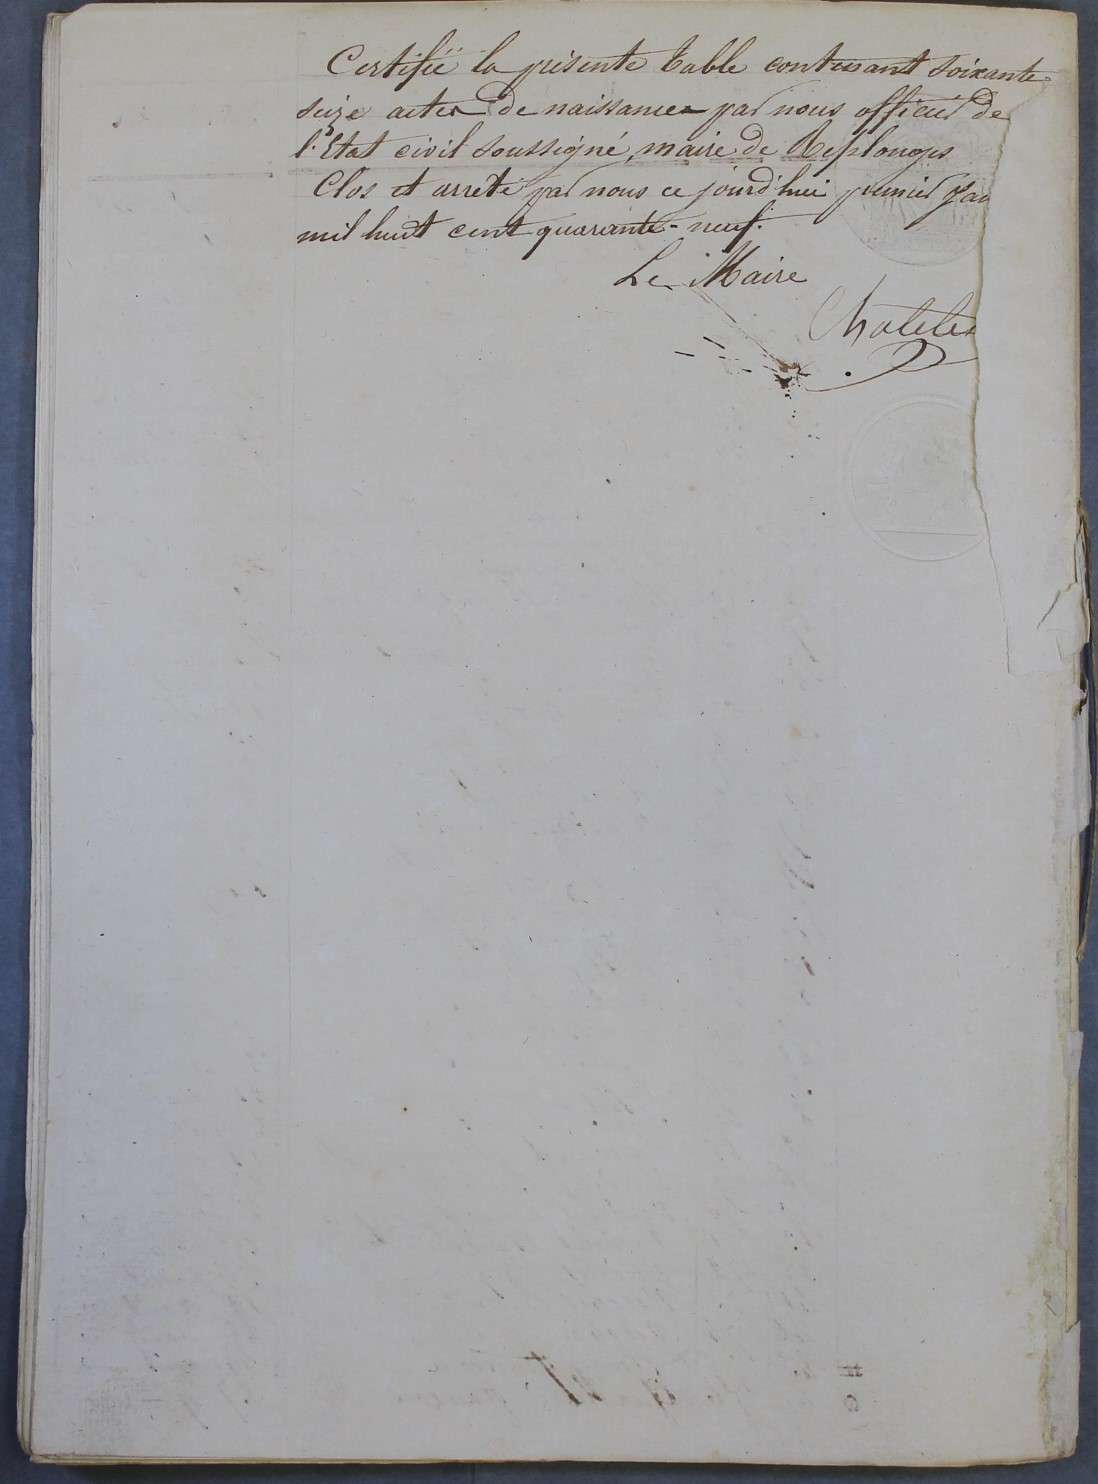 Certifié la présente table contenant soixante-
seize actes de naissances par nous officier de
l'Etat civil soussigné, maire de Replonges
Clos et arrêté par nous ce jourd'hui premier jan
mil huit cent quarante-neuf.
Le Maire